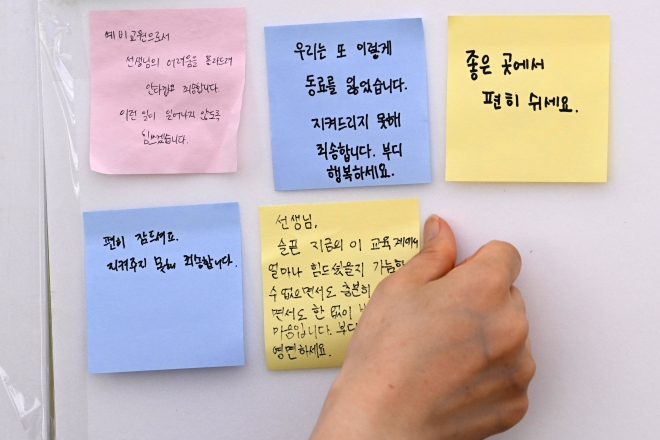 예비교원으로서
선생님의 어려움을 몰라드려
안타깝고 죄송합니다.
이런 일이 일어나지 않도록
힘쓰겠습니다.
우리는 또 이렇게
동료를 잃었습니다.
지켜드리지 못해
죄송합니다. 부디
행복하세요.
좋은 곳에서
편히 쉬세요.
편히 잠드세요.
지켜주지 못해 죄송합니다.
선생님,
슬픈 지금의 이 교육계에서
얼마나 힘드셨을지 가늠할
수 없으면서도 충분히
면서도 한 없이
마음입니다. 부디
영면하세요.